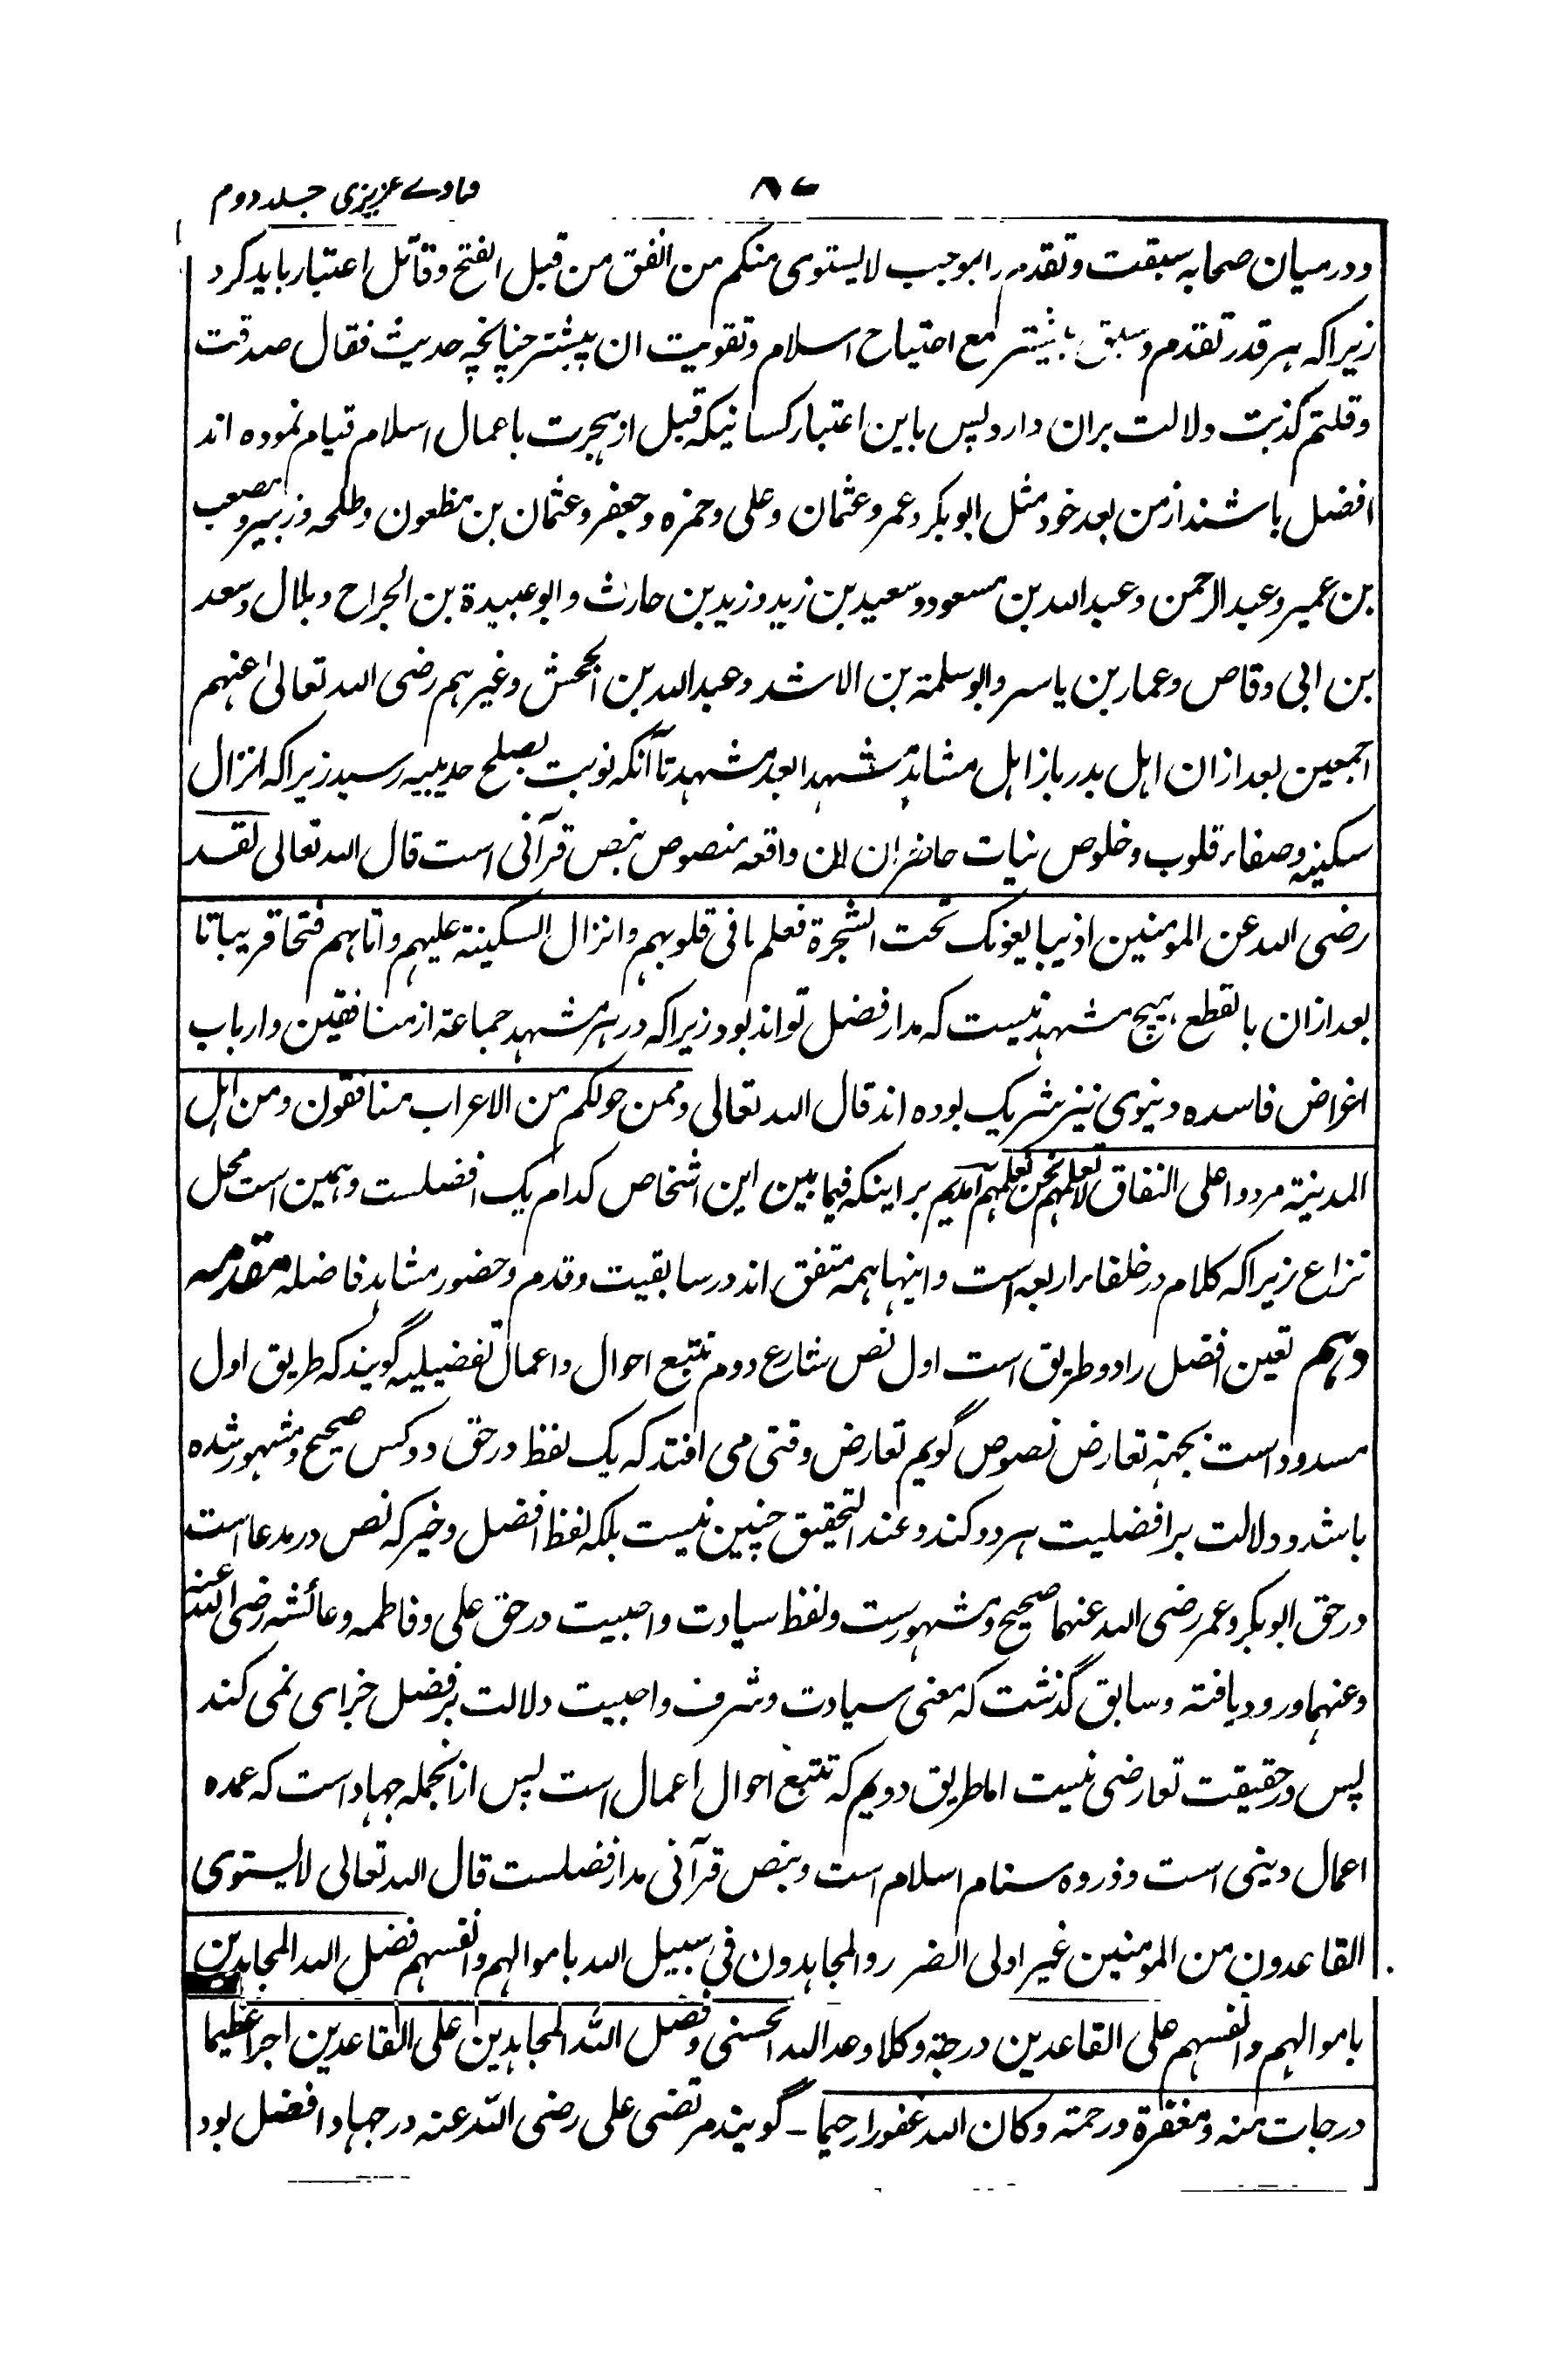 فتاوے عزیزی جلد دوم
۸۷
ودرمیان صحابه سبقت وتقدم را بموجب لایستوی منکم من انفق من قبل الفتح وقاتل اعتبار باید کرد
زیراکه هر قدر تقدم وسبق بیشتر مع احتیاج اسلام وتقویت ان بیشتر چنانچه حدیث فقال صدقت
وقلتم کذبت دلالت بران دارد پس باین اعتبار کسانیکه قبل از هجرت باعمال اسلام قیام نموده اند
افضل باشند از من بعد خود مثل ابوبکر وعمر وعثمان وعلی وحمزه وجعفر وعثمان بن مظعون وطلحه وزبیر ومصعب
بن عمیر وعبدالرحمن وعبدالله بن مسعود وسعید بن زید وزید بن حارث وابو عبیدة بن الجراح وبلال وسعد
بن ابی وقاص وعمار بن یاسر وابو سلمة بن الاشد وعبدالله بن الجحش وغیرهم رضی الله تعالیٰ عنهم
اجمعین بعد ازان اهل بدر باز اهل مشاهد مشهدا بعد مشهد تا آنکه نوبت بصلح حدیبیه رسید زیراکه انزال
سکینه وصفاء قلوب وخلوص نیات حاضران ان واقعه منصوص بنص قرآنی است قال الله تعالی لقد
رضی الله عن المومنین اذ یبایعونک تحت الشجرة فعلم ما فی قلوبهم وانزال السکینة علیهم واثابهم فتحا قریبا تا
بعد ازان بالقطع هیچ مشهد نیست که مدار فضل تواند بود زیراکه در هر مشهد جماعة از منافقین وارباب
اغراض فاسده دنیوی نیز شریک بوده اند قال الله تعالی وممن حولکم من الاعراب منافقون ومن اهل
المدینة مردوا علی النفاق لا تعلمهم نحن نعلمهم آمدیم بر اینکه فیما بین این اشخاص کدام یک افضلست وهمین است محل
نزاع زیراکه کلام در خلفاء اربعه است واینها همه متفق اند در سابقیت وقدم وحضور مشاهد فاضله مقدمه
دهم تعین افضل را دو طریق است اول نص شارع دوم تتبع احوال واعمال تفضیلیه گویند که طریق اول
مسدود است بجهة تعارض نصوص گویم تعارض وقتی می افتد که یک لفظ در حق دو کس صحیح ومشهور شده
باشد ودلالت بر افضلیت هر دو کند وعند التحقیق چنین نیست بلکه لفظ افضل وخیر که نص در مدعا است
در حق ابوبکر وعمر رضی الله عنهما صحیح ومشهورست ولفظ سیادت واحبیت در حق علی وفاطمه وعائشه رضی الله عنه
وعنهما ورود یافته وسابق گذشت که معنی سیادت وشرف واحبیت دلالت بر فضل جزای نمی کند
پس در حقیقت تعارضی نیست اما طریق دویم که تتبع احوال اعمال است پس از انجمله جهاد است که عمده
اعمال دینی است وذروه سنام اسلام است وبنص قرآنی مدار فضلست قال الله تعالی لایستوی
القاعدون من المومنین غیر اولی الضرر والمجاهدون فی سبیل الله باموالهم وانفسهم فضل الله المجاهدین
باموالهم وانفسهم علی القاعدین درجة وکلا وعد الله الحسنی وفضل الله المجاهدین علی القاعدین اجرا عظیما
درجات منه ومغفرة ورحمة وکان الله غفورا رحیما - گویند مرتضی علی رضی الله عنه در جهاد افضل بود